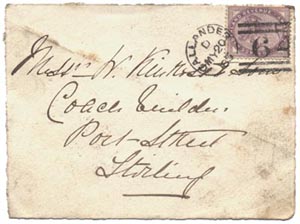 CALLANDER
D
MY 20
Messrs W. Kinross & Sons
Coach Builders
Port-Street
Stirling